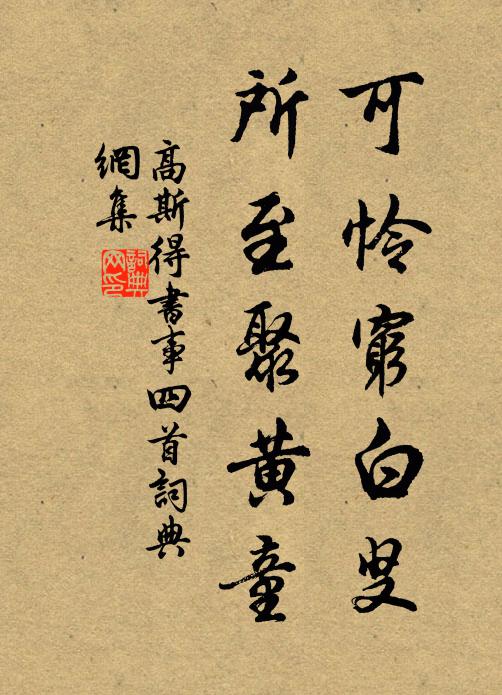 可怜窮白叟
所至聚黄童
高斯得書事四首詞典
網集
詞典
网印